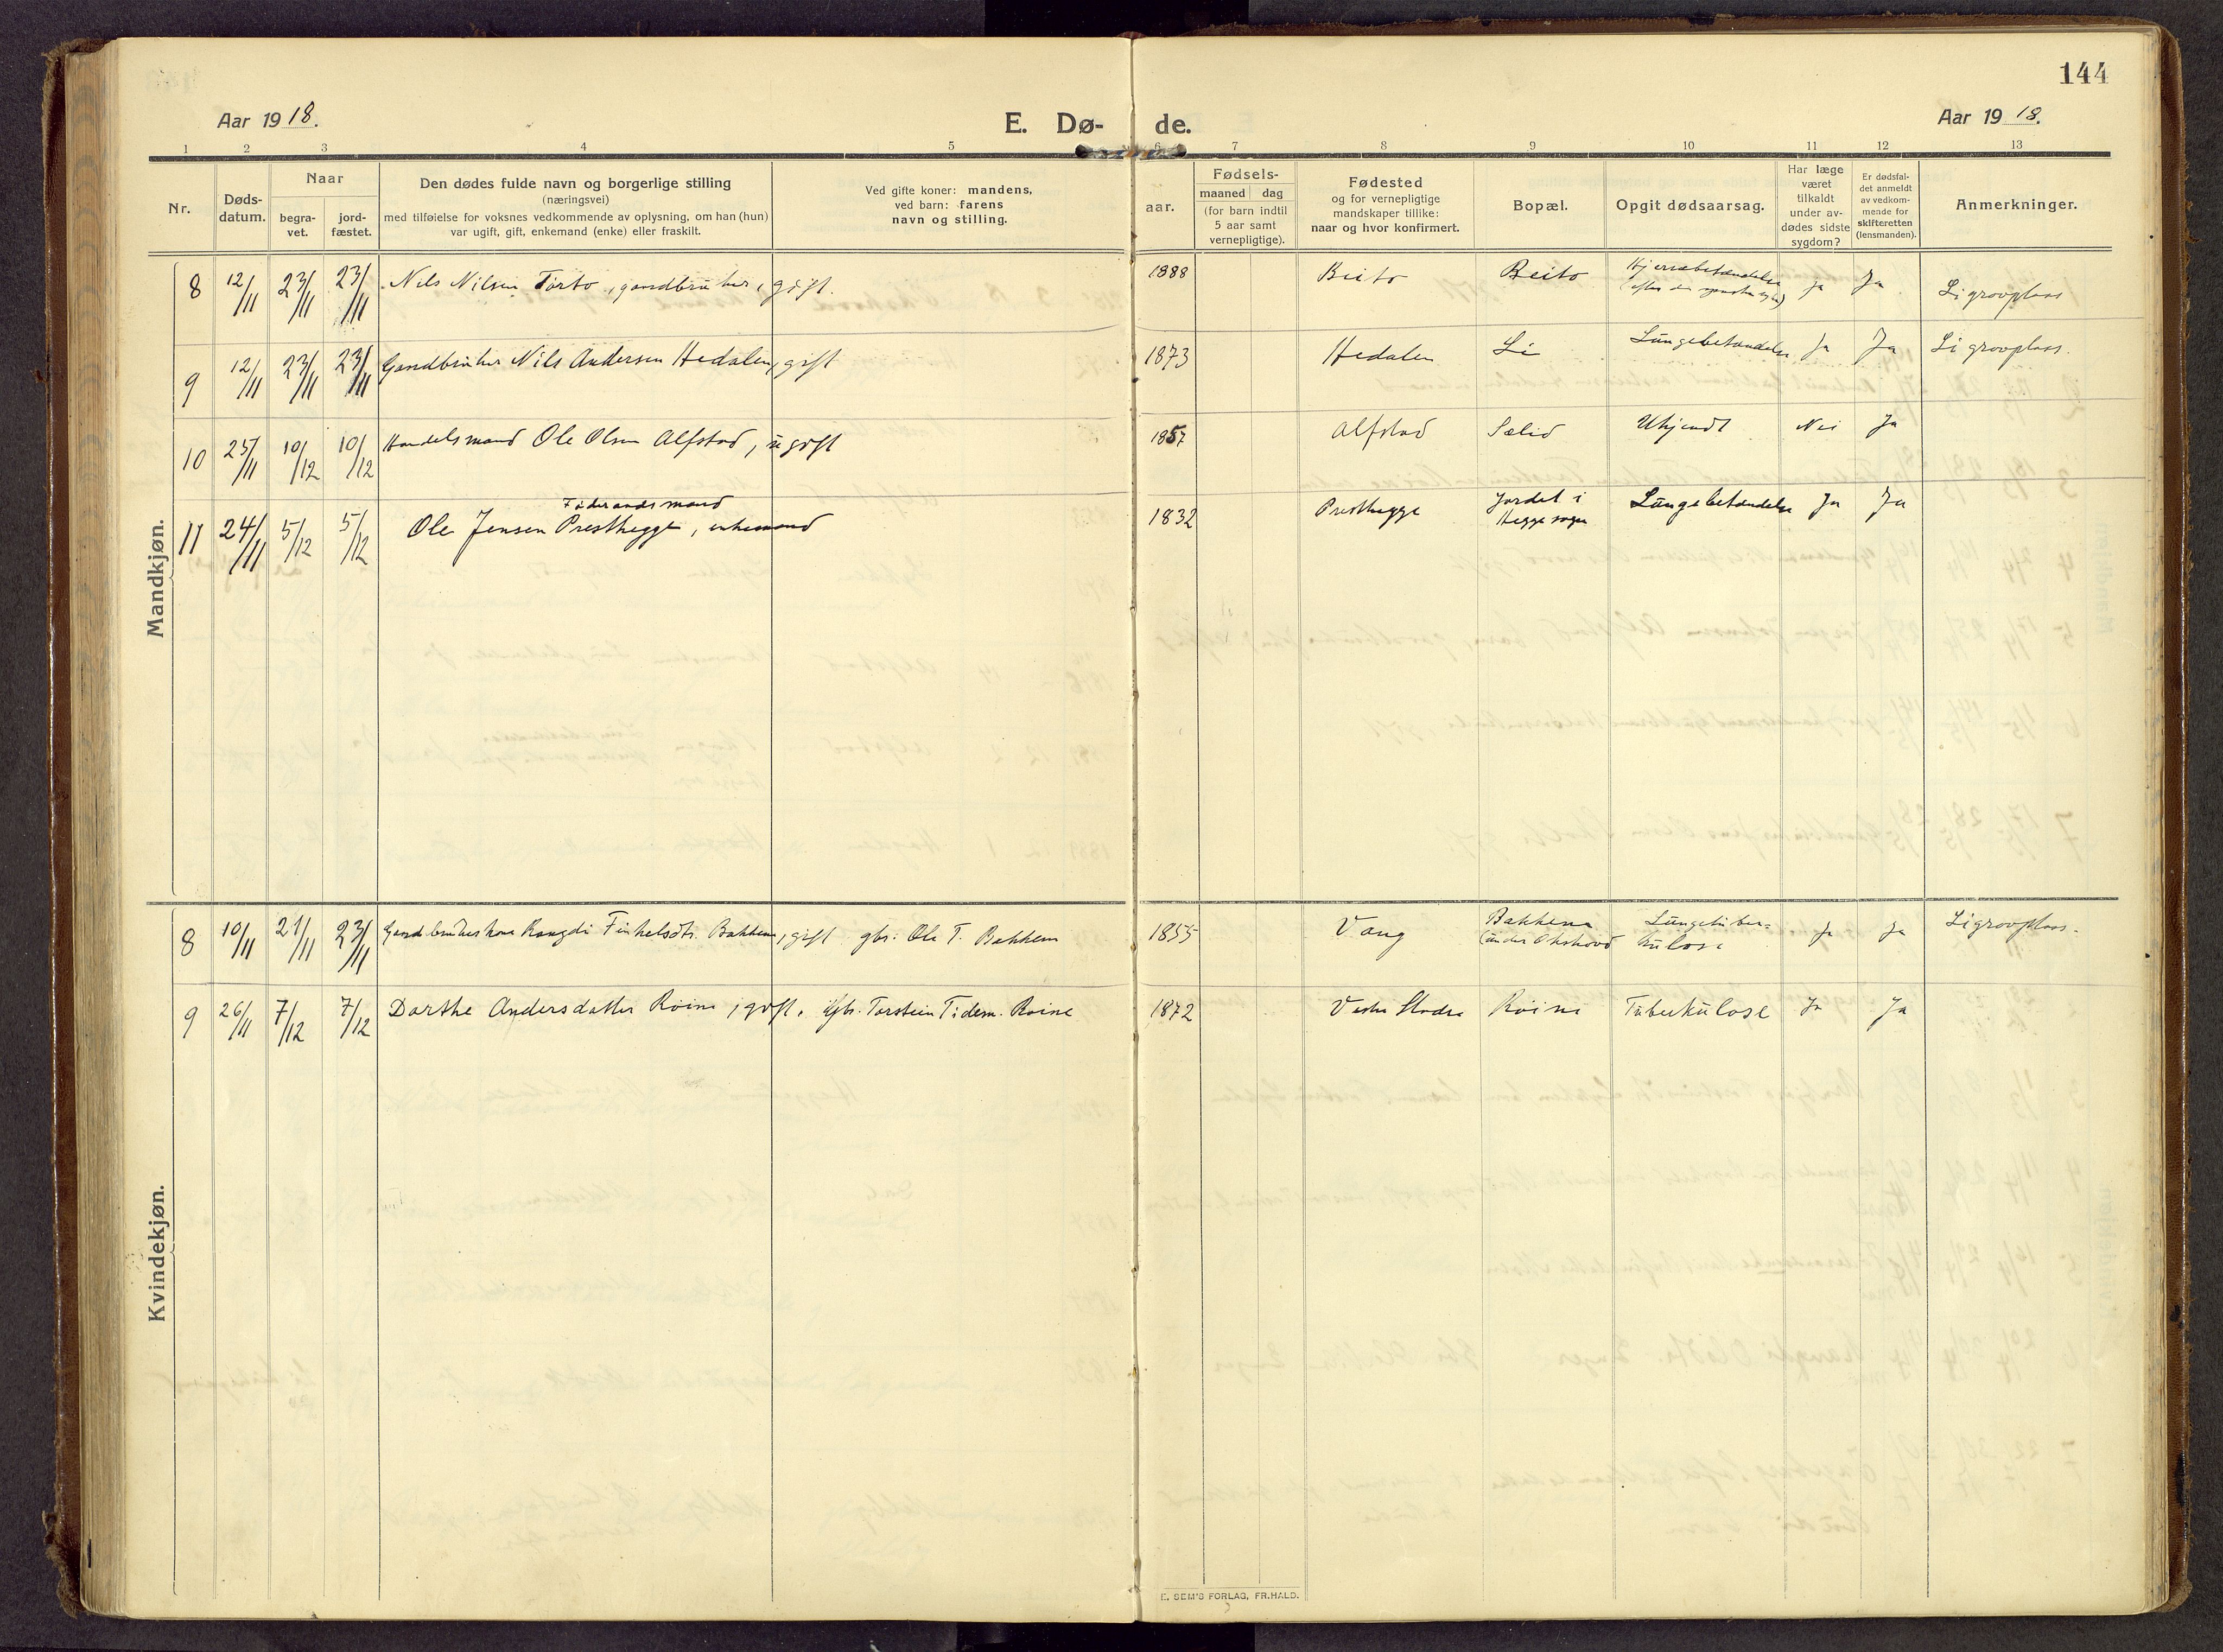 144
Aar 1918.
E. Dø-
de.
Aar 1918.
1 2 3 4 5 6 7 8 9 10 11 12 13
Nr.
Døds-
datum.
Naar
begra-
vet.
jord-
fæstet.
Den dødes fulde navn og borgerlige stilling
(næringsvei)
med tilføielse for voksnes vedkommende av oplysning, om han (hun)
var ugift, gift, enkemand (enke) eller fraskilt.
Ved gifte koner: mandens,
ved barn: farens
navn og stilling.
aar.
Fødsels-
maaned dag
(for barn indtil
5 aar samt
vernepligtige).
Fødested
og for vernepligtige
mandskaper tillike:
naar og hvor konfirmert.
Bopæl.
Opgit dødsaarsag.
Har læge
været
tilkaldt
under av-
dødes sidste
sygdom?
Er dødsfal-
det anmeldt
av vedkom-
mende for
skifteretten
(lensmanden).
Anmerkninger.
Mandkjøn.
8 12/11 23/11 23/11 Nils Nilsen Torto, gaardbruker, gift. 1888 Beito Beito Hjernebetændelse
(efter den spanske syke) ja Ja Li gravplass
9 12/11 23/11 23/11 Gaardbruker Nils Andersen Hedalen, gift 1873 Hedalen Li Lungebetændelse Ja Ja Li gravplass.
10 25/11 10/12 10/12 Handelsmand Ole Olsen Alfstad, ugift 1857 Alfstad Sælid Ukjendt Nei Ja
Føderaadsmand
11 24/11 5/12 5/12 Ole Jensen Presthegge, enkemand 1832 Presthegge Jordet i
Hegge sogn Lungebetændelse Ja Ja
Kvindekjøn.
8 10/11 21/11 23/11 Gaardbrukerkone Rangdi Tirkelsdtr. Bakken, gift gbr. Ole T. Bakken 1855 Vang Bakkene
(under Okshovd Lungetuber=
kulose Ja Ja Li gravplass.
9 26/11 7/12 7/12 Dorthe Andersdatter Röine, gift. Gbr. Torstein Tidem. Röine 1872 Vestre Slidre Röine Tuberkulose Ja Ja
E. SEM'S FORLAG, FR.HALD.